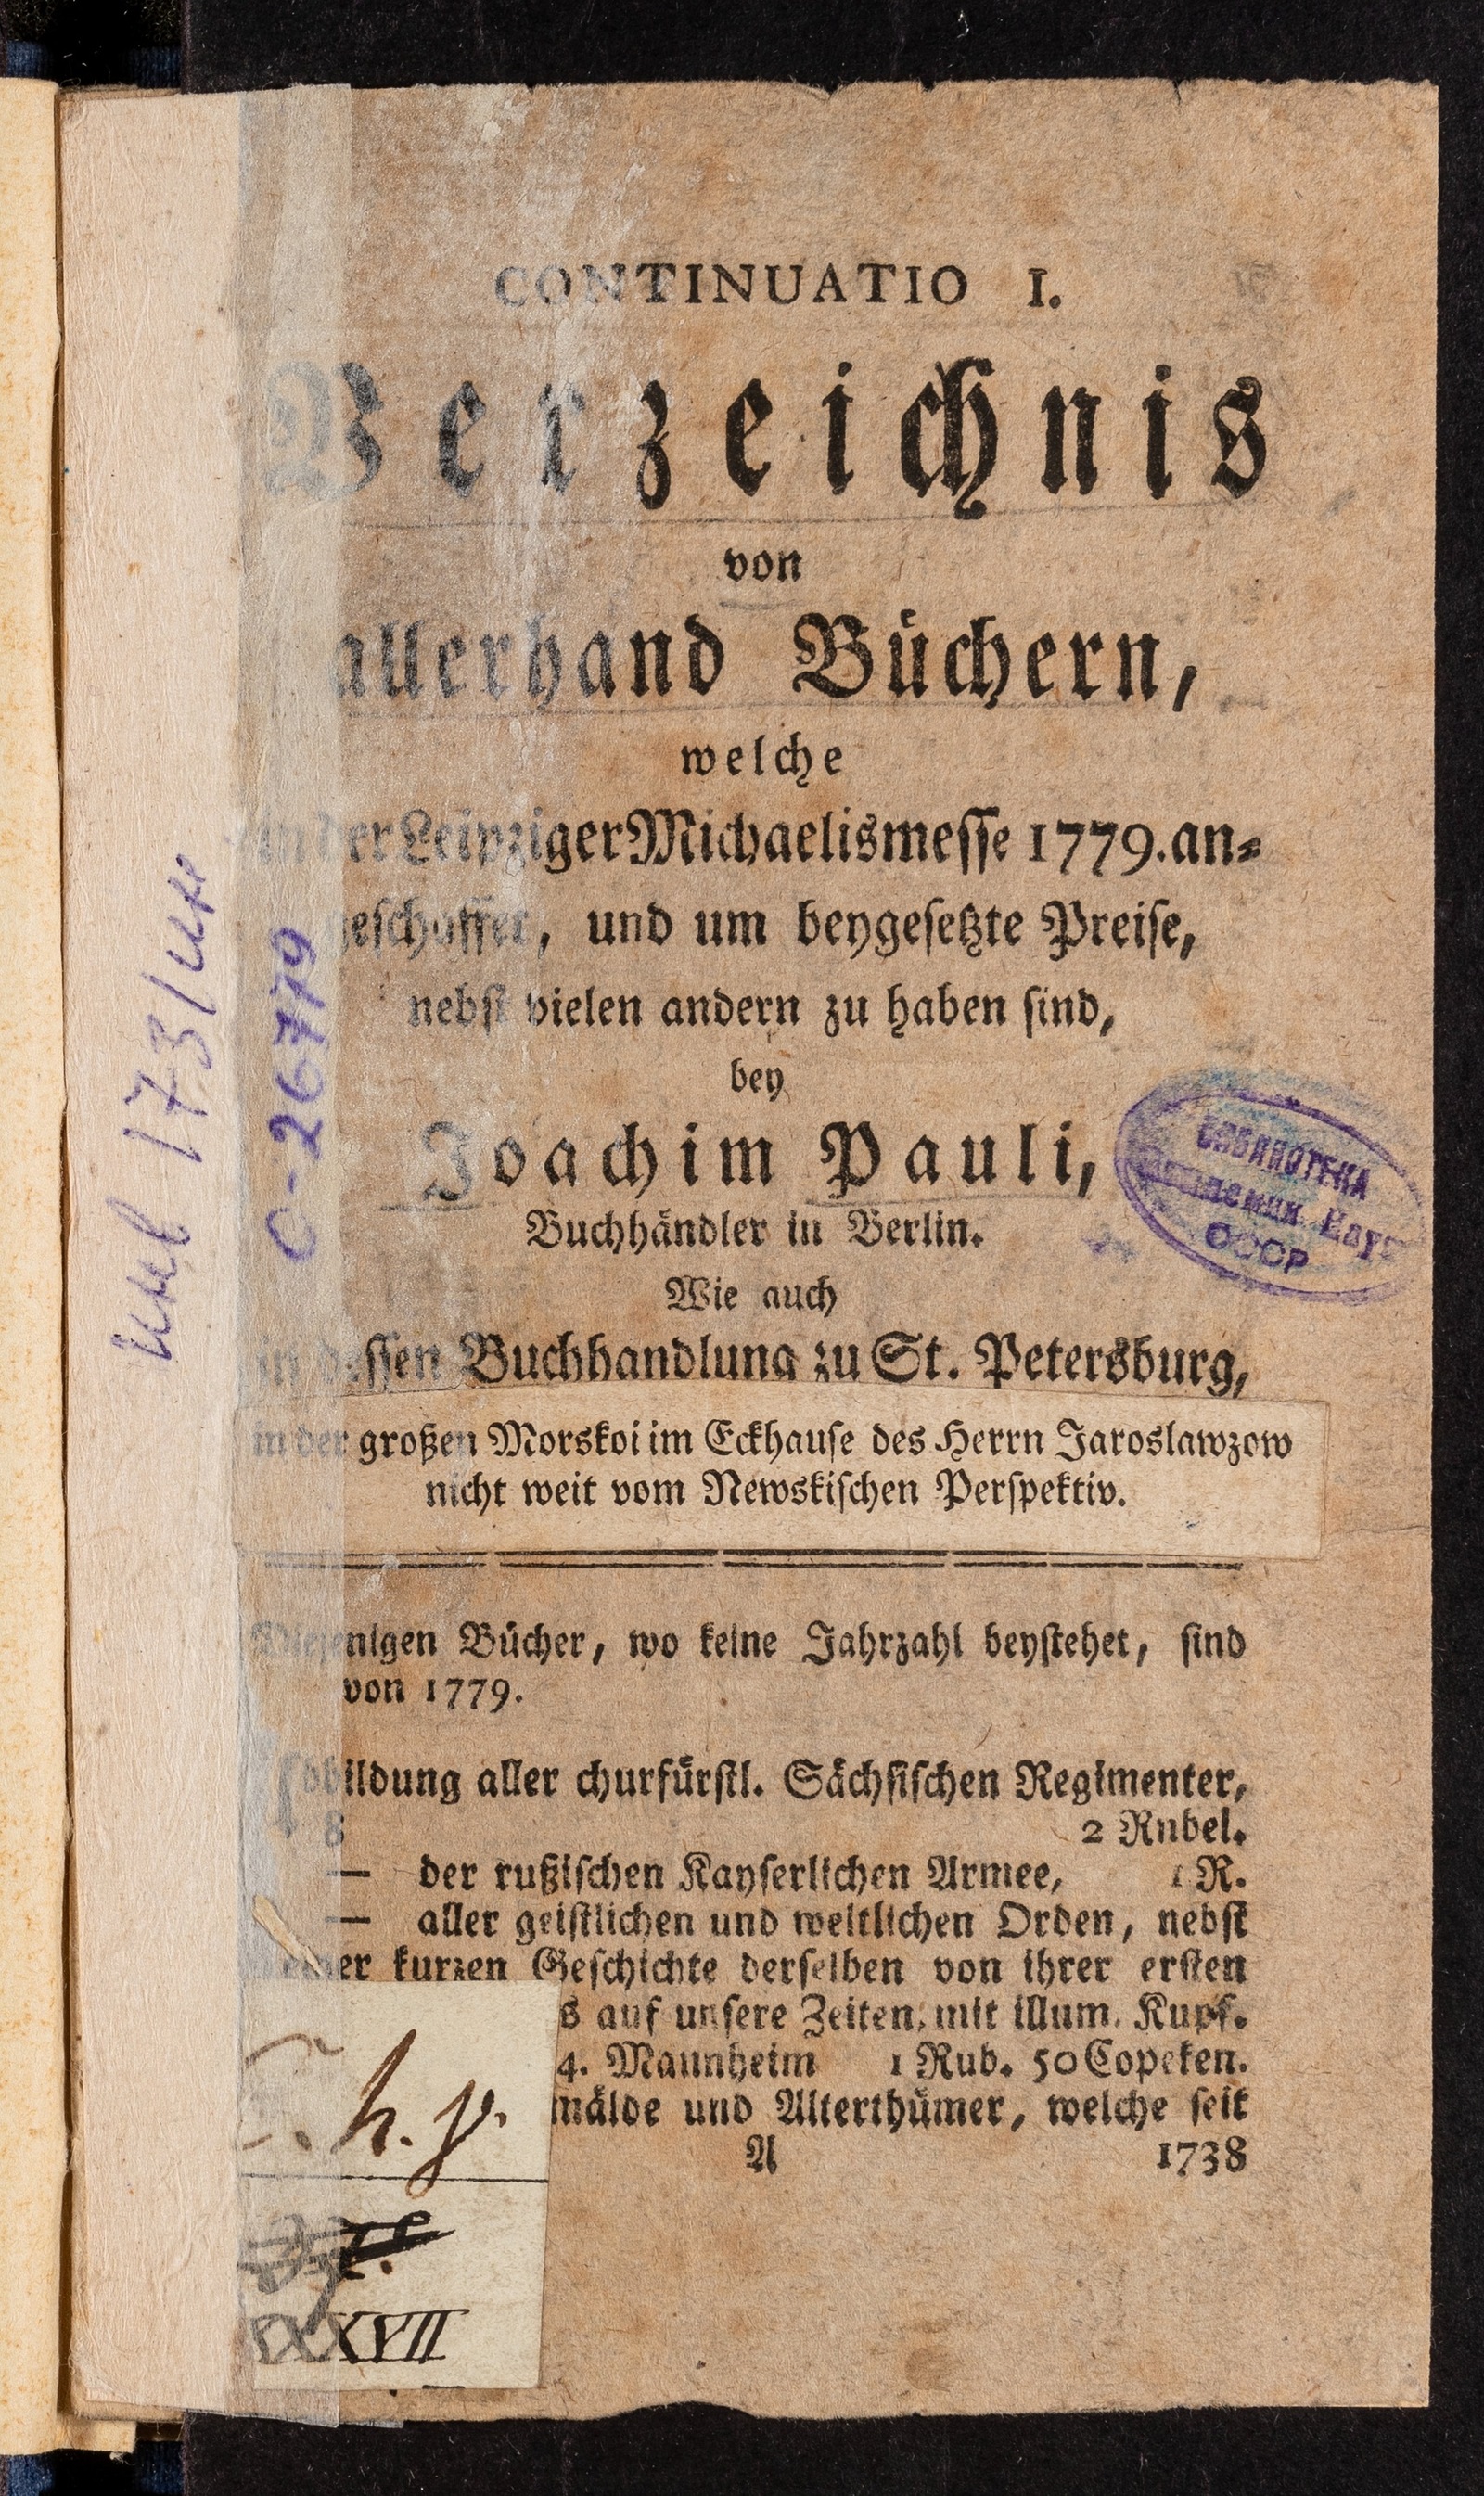 CONTINUATIO I.
Verzeichnis
von
allerhand Büchern,
welche
in der Leipziger Michaelismesse 1779. an-
geschaffet, und um beygesetzte Preise,
nebst vielen andern zu haben sind,
bey
Joachim Pauli,
Buchhändler in Berlin.
Wie auch
in dessen Buchhandlung zu St. Petersburg,
in der großen Morskoi im Eckhause des Herrn Jaroslawzow
nicht weit vom Newskischen Perspektiv.
Diejenigen Bücher, wo keine Jahrzahl beystehet, sind
von 1779.
Abbildung aller churfürstl. Sächsischen Regimenter,
8 2 Rubel.
— der rußischen Kayserlichen Armee, 1 R.
— aller geistlichen und weltlichen Orden, nebst
einer kurzen Geschichte derselben von ihrer ersten
s auf unsere Zeiten, mit illum. Kupf.
4. Mannheim 1 Rub. 50 Copeken.
mälde und Alterthümer, welche seit
A 1738
h. y.
LXXVII
инв 173/ин
О-26779
БИБЛИОТЕКА
СССР